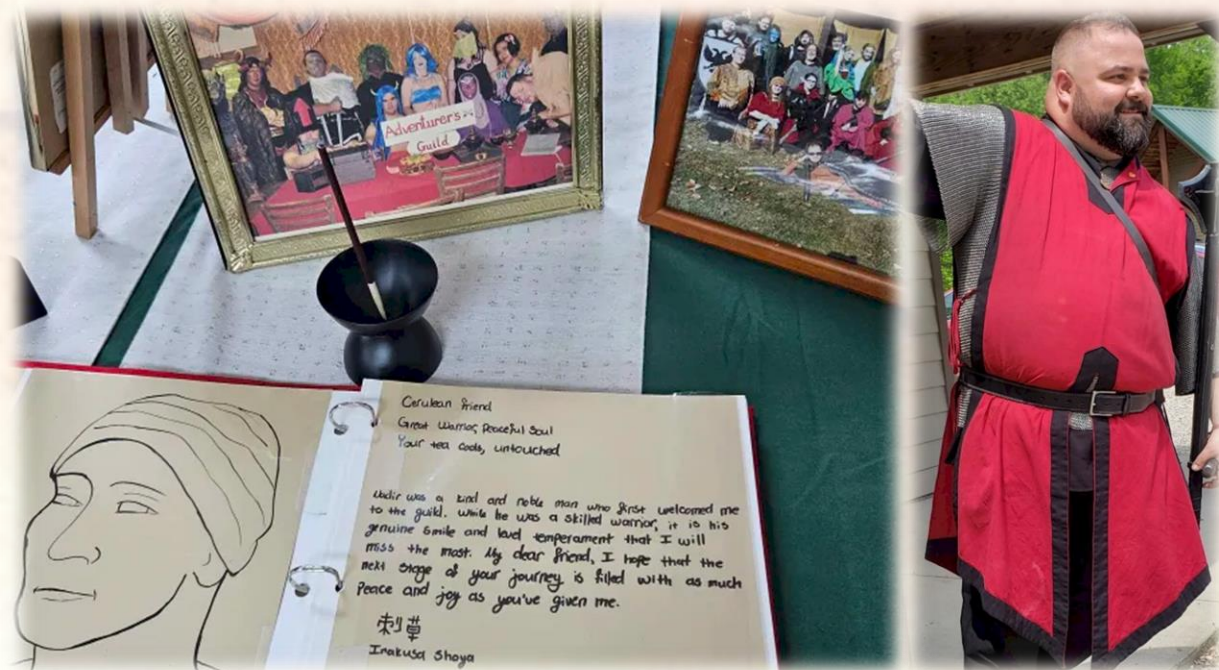 Adventurers
Guild
Cerulean friend
Great Warrior, Peaceful Soul
Your tea cools, untouched
Nadir was a kind and noble man who first welcomed me
to the guild. While he was a skilled warrior, it is his
genuine smile and level temperament that I will
miss the most. My dear friend, I hope that the
next stage of your journey is filled with as much
Peace and joy as you've given me.
刺草
Irakusa Shoya